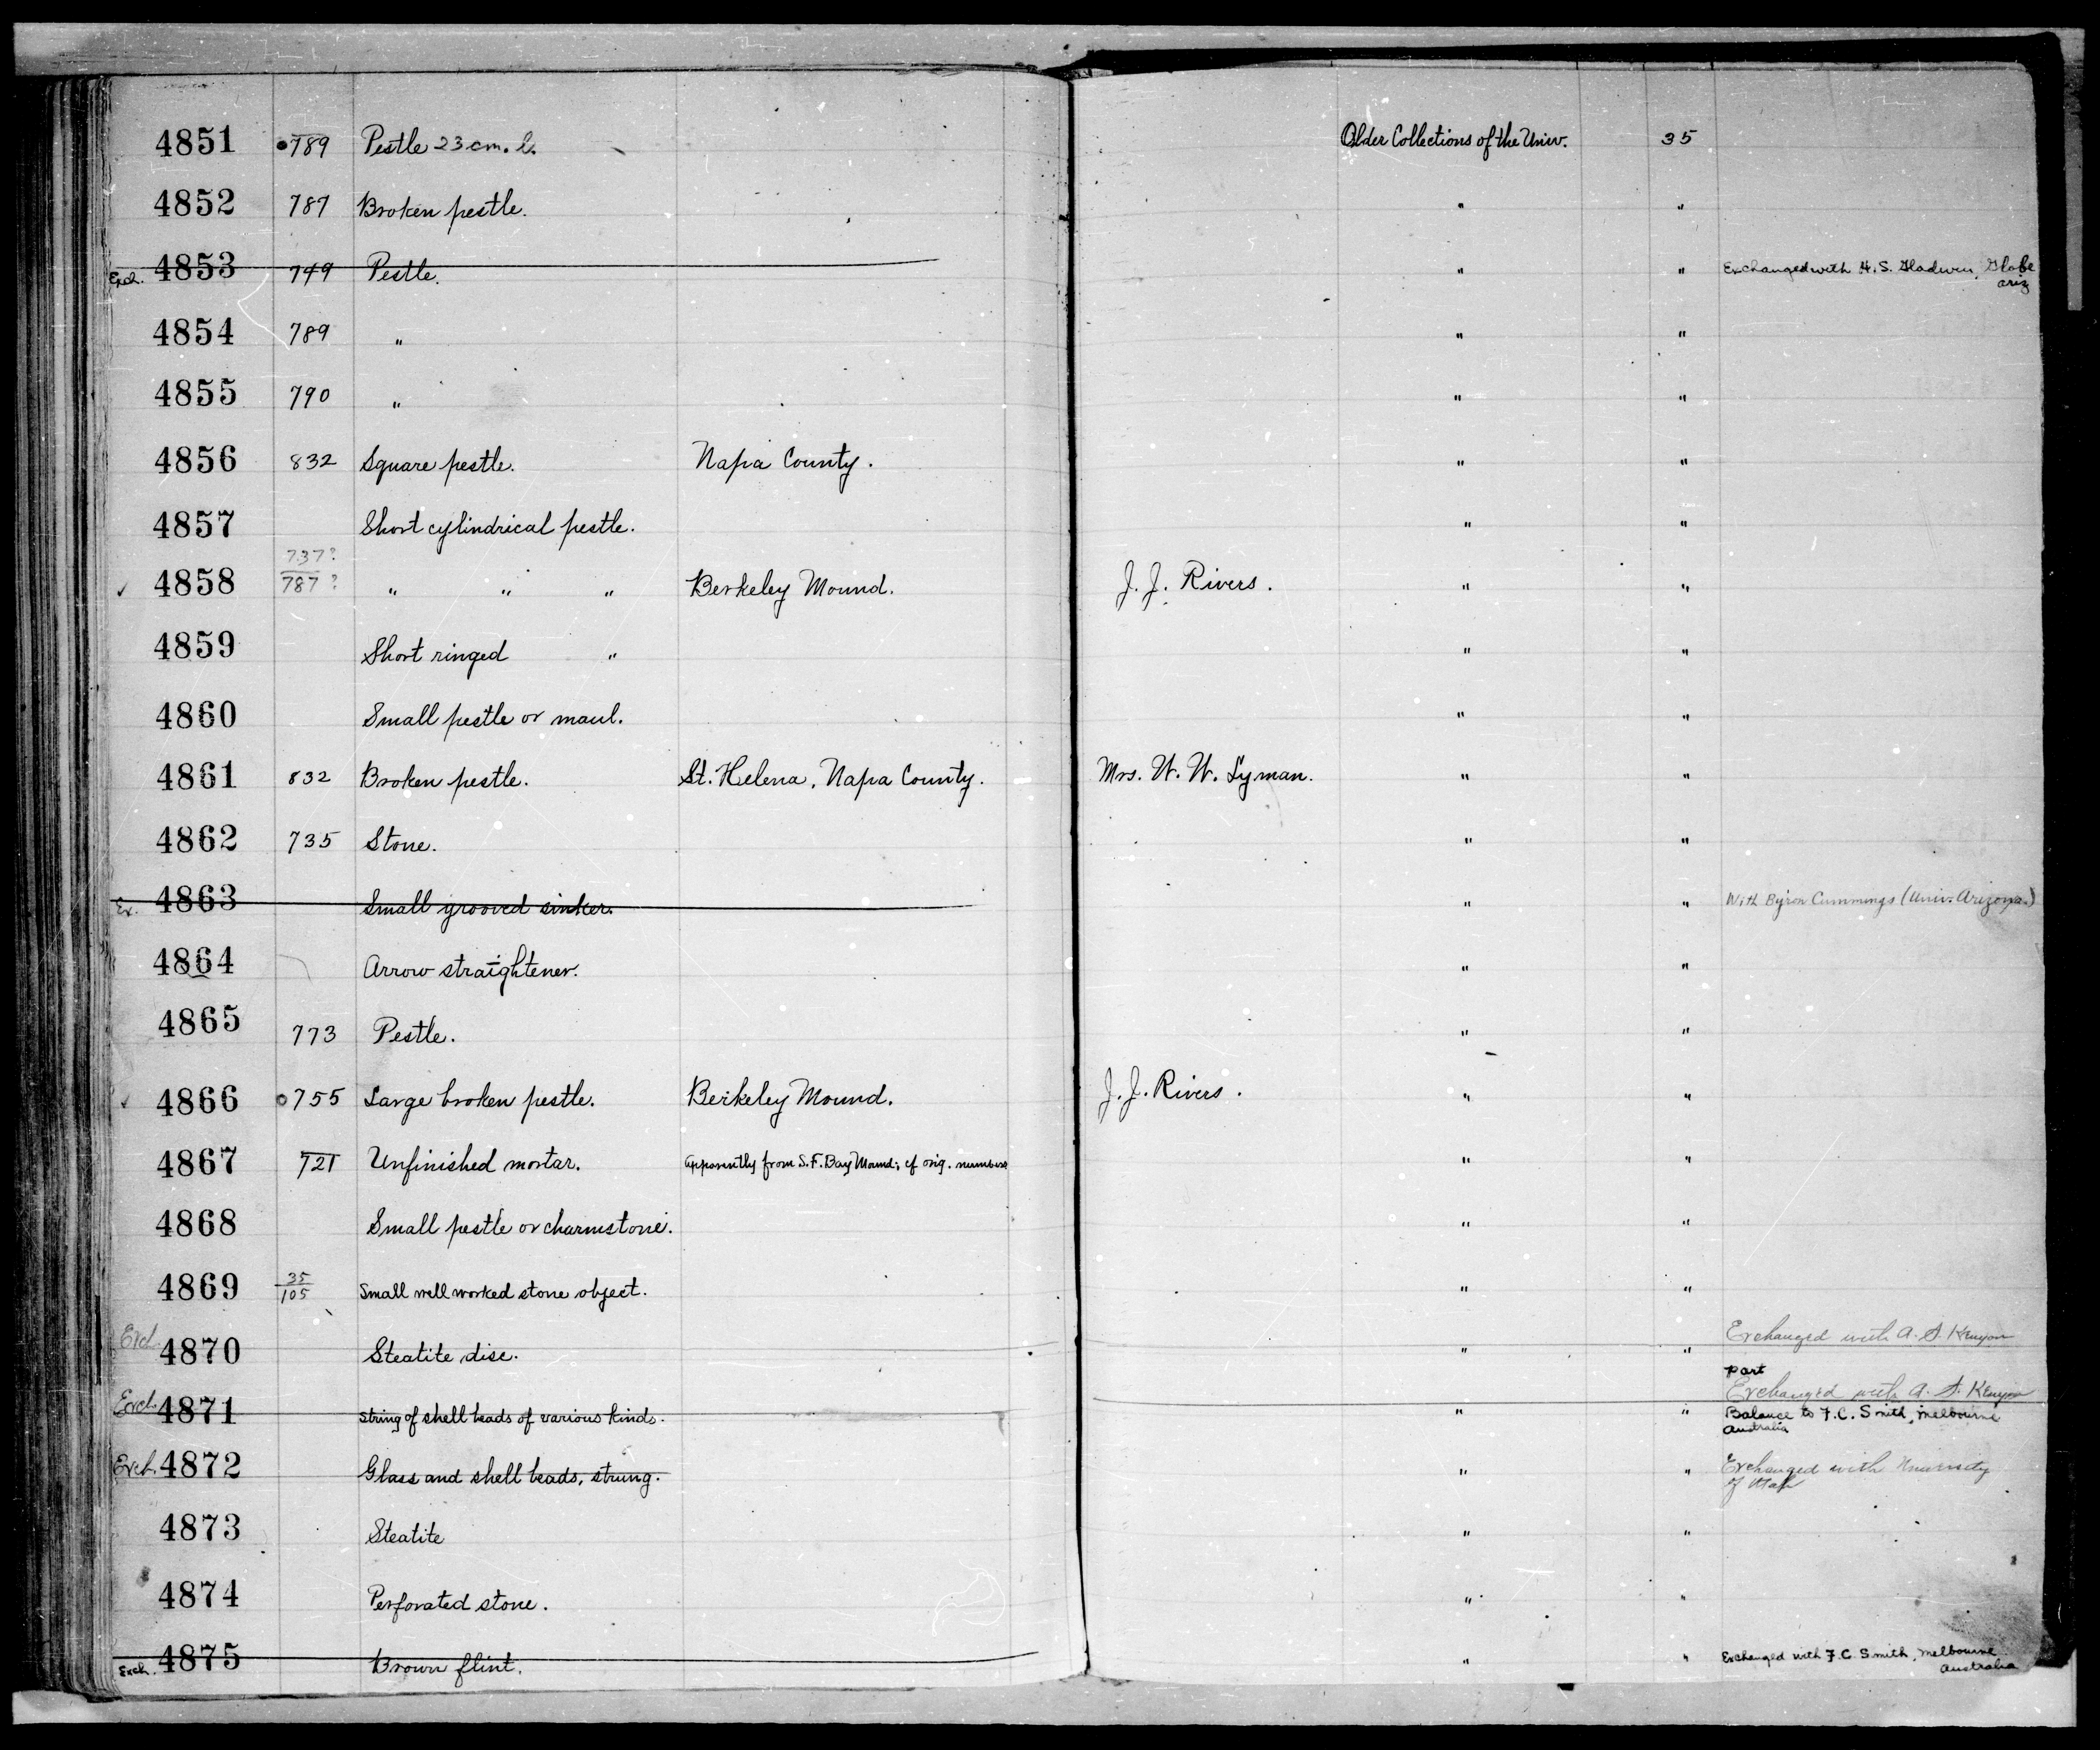 4851 789 Pestle 23 cm. l. Older Collections of the Univ. 35
4852 787 Broken pestle. " "
Exch. 4853 749 Pestle. " " Exchanged with H. S. Gladwin, Globe
Ariz
4854 789 " " "
4855 790 " " "
4856 832 Square pestle. Napa County. " "
4857 Short cylindrical pestle. " "
737?
✓ 4858 787? " " " Berkeley Mound. J. J. Rivers. " "
4859 Short ringed " " "
4860 Small pestle or maul. " "
4861 832 Broken pestle. St. Helena, Napa County. Mrs. W. W. Lyman. " "
4862 735 Stone. " "
Ex. 4863 Small grooved sinker. " " With Byron Cummings (Univ. Arizona.)
4864 Arrow straightener. " "
4865 773 Pestle. " "
✓ 4866 755 Large broken pestle. Berkeley Mound. J. J. Rivers. " "
4867 721 Unfinished mortar. Apparently from S.F. Bay Mound; cf orig. numbers " "
4868 Small pestle or charmstone. " "
4869 35/105 Small well worked stone object. " "
Exch. 4870 Steatite disc. " " Exchanged with A. S. Kenyon
part
Exchanged with A. S. Kenyon
Exch. 4871 String of shell beads of various kinds. " " Balance to F. C. Smith, Melbourne
Australia
Exch. 4872 Glass and shell beads, strung. " " Exchanged with University
of Utah
4873 Steatite " "
4874 Perforated stone. " "
Exch. 4875 Brown flint. " " Exchanged with F. C. Smith, Melbourne
Australia